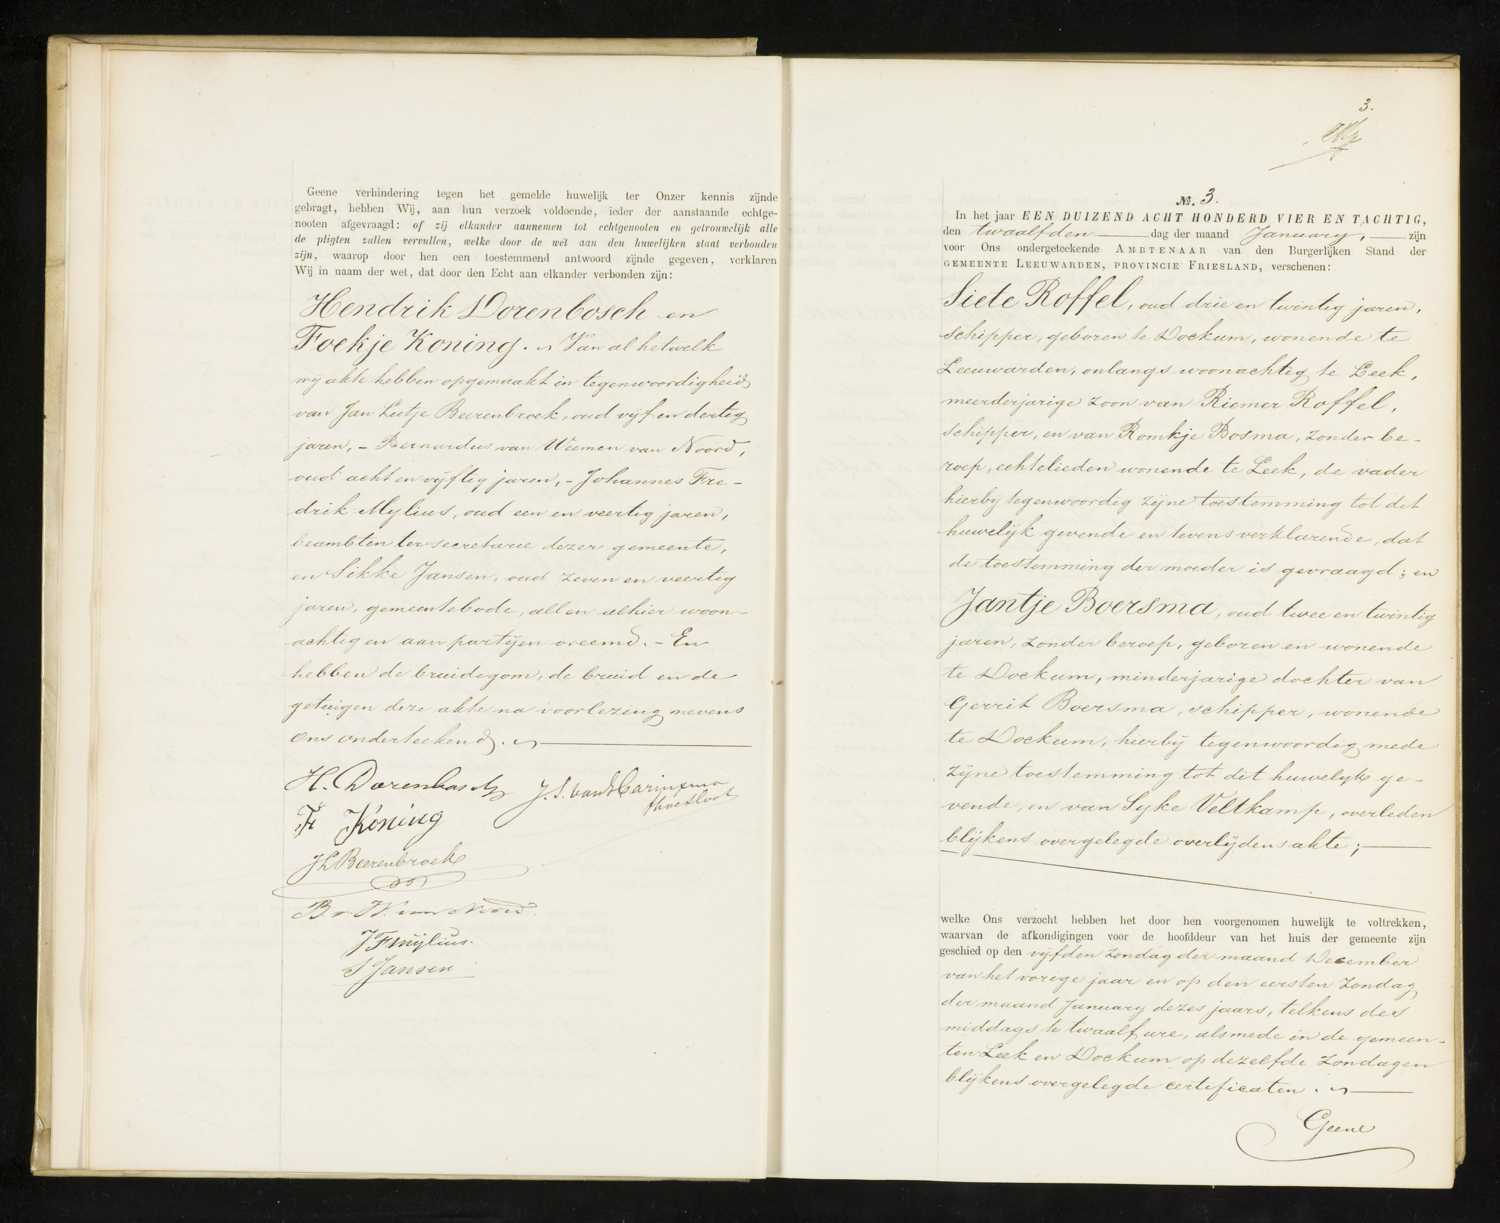 Geene verhindering tegen het gemelde huwelijk ter Onzer kennis zijnde
gebragt, hebben Wij, aan hun verzoek voldoende, ieder der aanstaande echtge-
nooten afgevraagd: of zij elkander aannemen tot echtgenooten en getrouwelijk alle
de pligten zullen vervullen, welke door de wet aan den huwelijken staat verbonden
zijn, waarop door hen een toestemmend antwoord zijnde gegeven, verklaren
Wij in naam der wet, dat door den Echt aan elkander verbonden zijn:
Hendrik Dorenbosch en
Foekje Koning. Van al hetwelk
wij akte hebben opgemaakt in tegenwoordigheid
van Jan Eeltje Beerenbroek, oud vijf en dertig
jaren, – Bernardus van Weemen van Noord,
oud acht en vijftig jaren, – Johannes Fre-
drik Mylius, oud een en veertig jaren,
beambten ter secretarie dezer gemeente,
en Sikke Jansen, oud zeven en veertig
jaren, gemeentebode, allen alhier woon-
achtig en aan partijen vreemd. – En
hebben de bruidegom, de bruid en de
getuigen deze akte na voorlezing nevens
ons onderteekend.
H. Dorenbosch J. S. van Harinxma
thoe Slooten
F. Koning
J L Beerenbroek
B v W. van Noord.
J F Mylius.
S Jansen
3.
No. 3.
In het jaar EEN DUIZEND ACHT HONDERD VIER EN TACHTIG,
den twaalfden dag der maand January, zijn
voor Ons ondergeteekende AMBTENAAR van den Burgerlijken Stand der
GEMEENTE LEEUWARDEN, PROVINCIE FRIESLAND, verschenen:
Siete Roffel, oud drie en twintig jaren,
schipper, geboren te Dockum, wonende te
Leeuwarden, onlangs woonachtig te Leek,
meerderjarige zoon van Riemer Roffel,
schipper, en van Romkje Bosma, zonder be-
roep, echtelieden wonende te Leek, de vader
hierbij tegenwoordig zijne toestemming tot dit
huwelijk gevende en tevens verklarende, dat
de toestemming der moeder is gevraagd; en
Jantje Boersma, oud twee en twintig
jaren, zonder beroep, geboren en wonende
te Dockum, minderjarige dochter van
Gerrit Boersma, schipper, wonende
te Dockum, hierbij tegenwoordig mede
zijne toestemming tot dit huwelijk ge-
vende, en van Syke Veltkamp, overleden
blijkens overgelegde overlijdensakte;
welke Ons verzocht hebben het door hen voorgenomen huwelijk te voltrekken,
waarvan de afkondigingen voor de hoofddeur van het huis der gemeente zijn
geschied op den vijfden Zondag der maand December
van het vorige jaar en op den eersten Zondag
der maand January dezes jaars, telkens des
middags te twaalf ure, alsmede in de gemeen-
ten Leek en Dockum op dezelfde Zondagen
blijkens overgelegde certificaten.
Geene